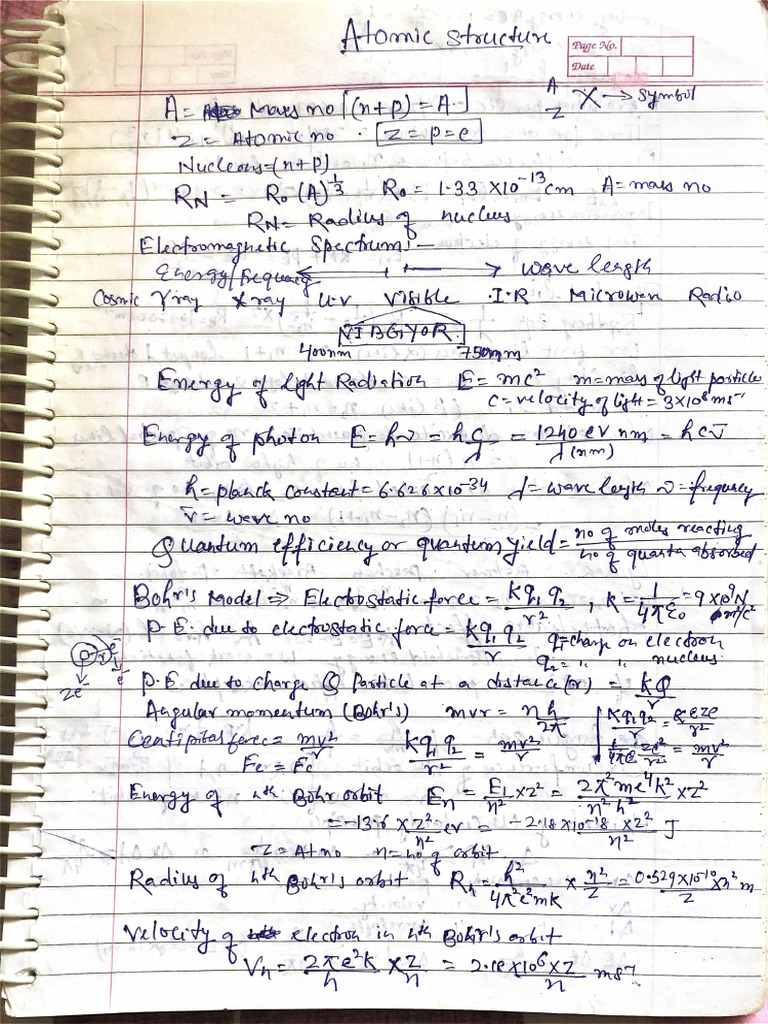 Atomic structure
Page No.
Date
A = Mass no [(n+p) = A.]
A
Z X → Symbol
Z = Atomic no . [Z = p = e]
Nucleous = (n+p)
R_N = R₀ (A)^1/3 R₀ = 1.33 × 10⁻¹³ cm A = mass no
R_N = Radius of nucleus
Electromagnetic Spectrum :—
Energy/frequency ← → wave length
Cosmic γ ray X ray U.V. Visible I.R Microwave Radio
VIBGYOR.
400nm 750nm
Energy of light Radiation E = mc² m = mass of light particle
c = velocity of light = 3×10⁸ ms⁻¹
Energy of photon E = hν = hc/λ = 1240 ev nm/λ(nm) = hcν̄
h = planck constant = 6.626×10⁻³⁴ λ = wave length ν = frequency
ν̄ = wave no .
Quantum efficiency or quantum yield = no of moles reacting/no of quanta absorbed
Bohr's Model ⇒ Electrostatic force = Kq₁q₂/r² , K = 1/4πε₀ = 9×10⁹ N m²/c²
P.E. due to electrostatic force = Kq₁q₂/r q₁ = charge on electron
q₂ = " " nucleus
e⁻
ze⁻
P.E due to charge Q Particle at a distance (r) = KQ/r
Angular momentum (Bohr's) mvr = nh/2π
Kq₁q₂/r² =
Centipital force = mv²/r Kq₁q₂/r² = mv²/r
= mv²/r
Fe = Fc
Energy of nth Bohr orbit En = E₁/n² × Z² = 2π²me⁴k²/n²h² × Z²
= −13.6 × Z²/n² ev = −2.18×10⁻¹⁸ × Z²/n² J
Z = At no n = no of orbit
Radius of nth Bohr's orbit Rn = h²/4π²e²mk × n²/Z = 0.529×10⁻¹⁰ × n²/Z m
Velocity of electron in nth Bohr's orbit
Vn = 2πe²k/h × Z/n = 2.18×10⁶ × Z/n ms⁻¹